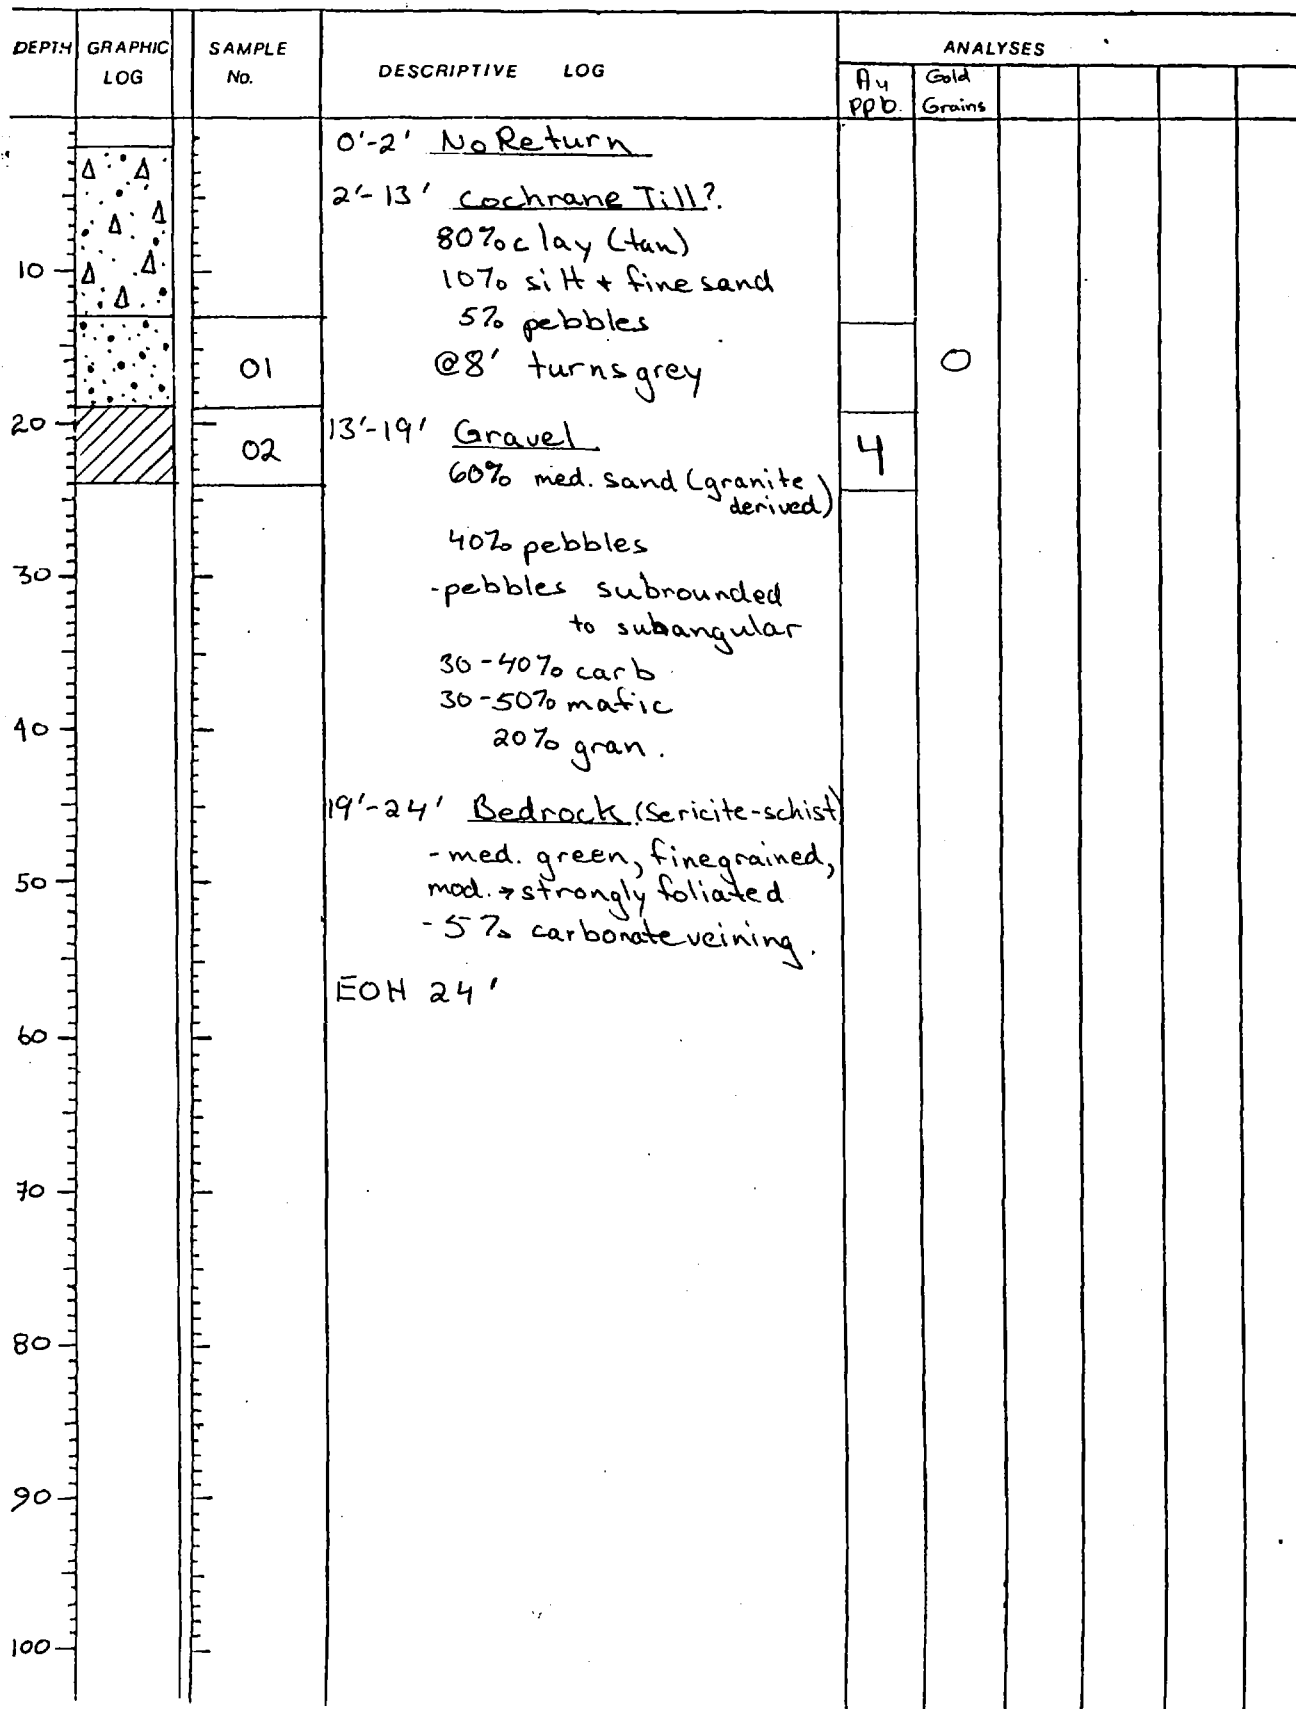 DEPTH GRAPHIC LOG SAMPLE No. DESCRIPTIVE LOG ANALYSES
Au ppb. Gold Grains
0'-2' No Return
2'-13' Cochrane Till?
80% clay (tan)
10% silt + fine sand
5% pebbles
@8' turns grey
13'-19' Gravel
60% med. sand (granite
derived)
40% pebbles
-pebbles subrounded
to subangular
30-40% carb
30-50% mafic
20% gran.
19'-24' Bedrock (Sericite-schist)
-med. green, finegrained,
mod. → strongly foliated
-5% carbonate veining.
EOH 24'
10
20
30
40
50
60
70
80
90
100
01
02
4
0